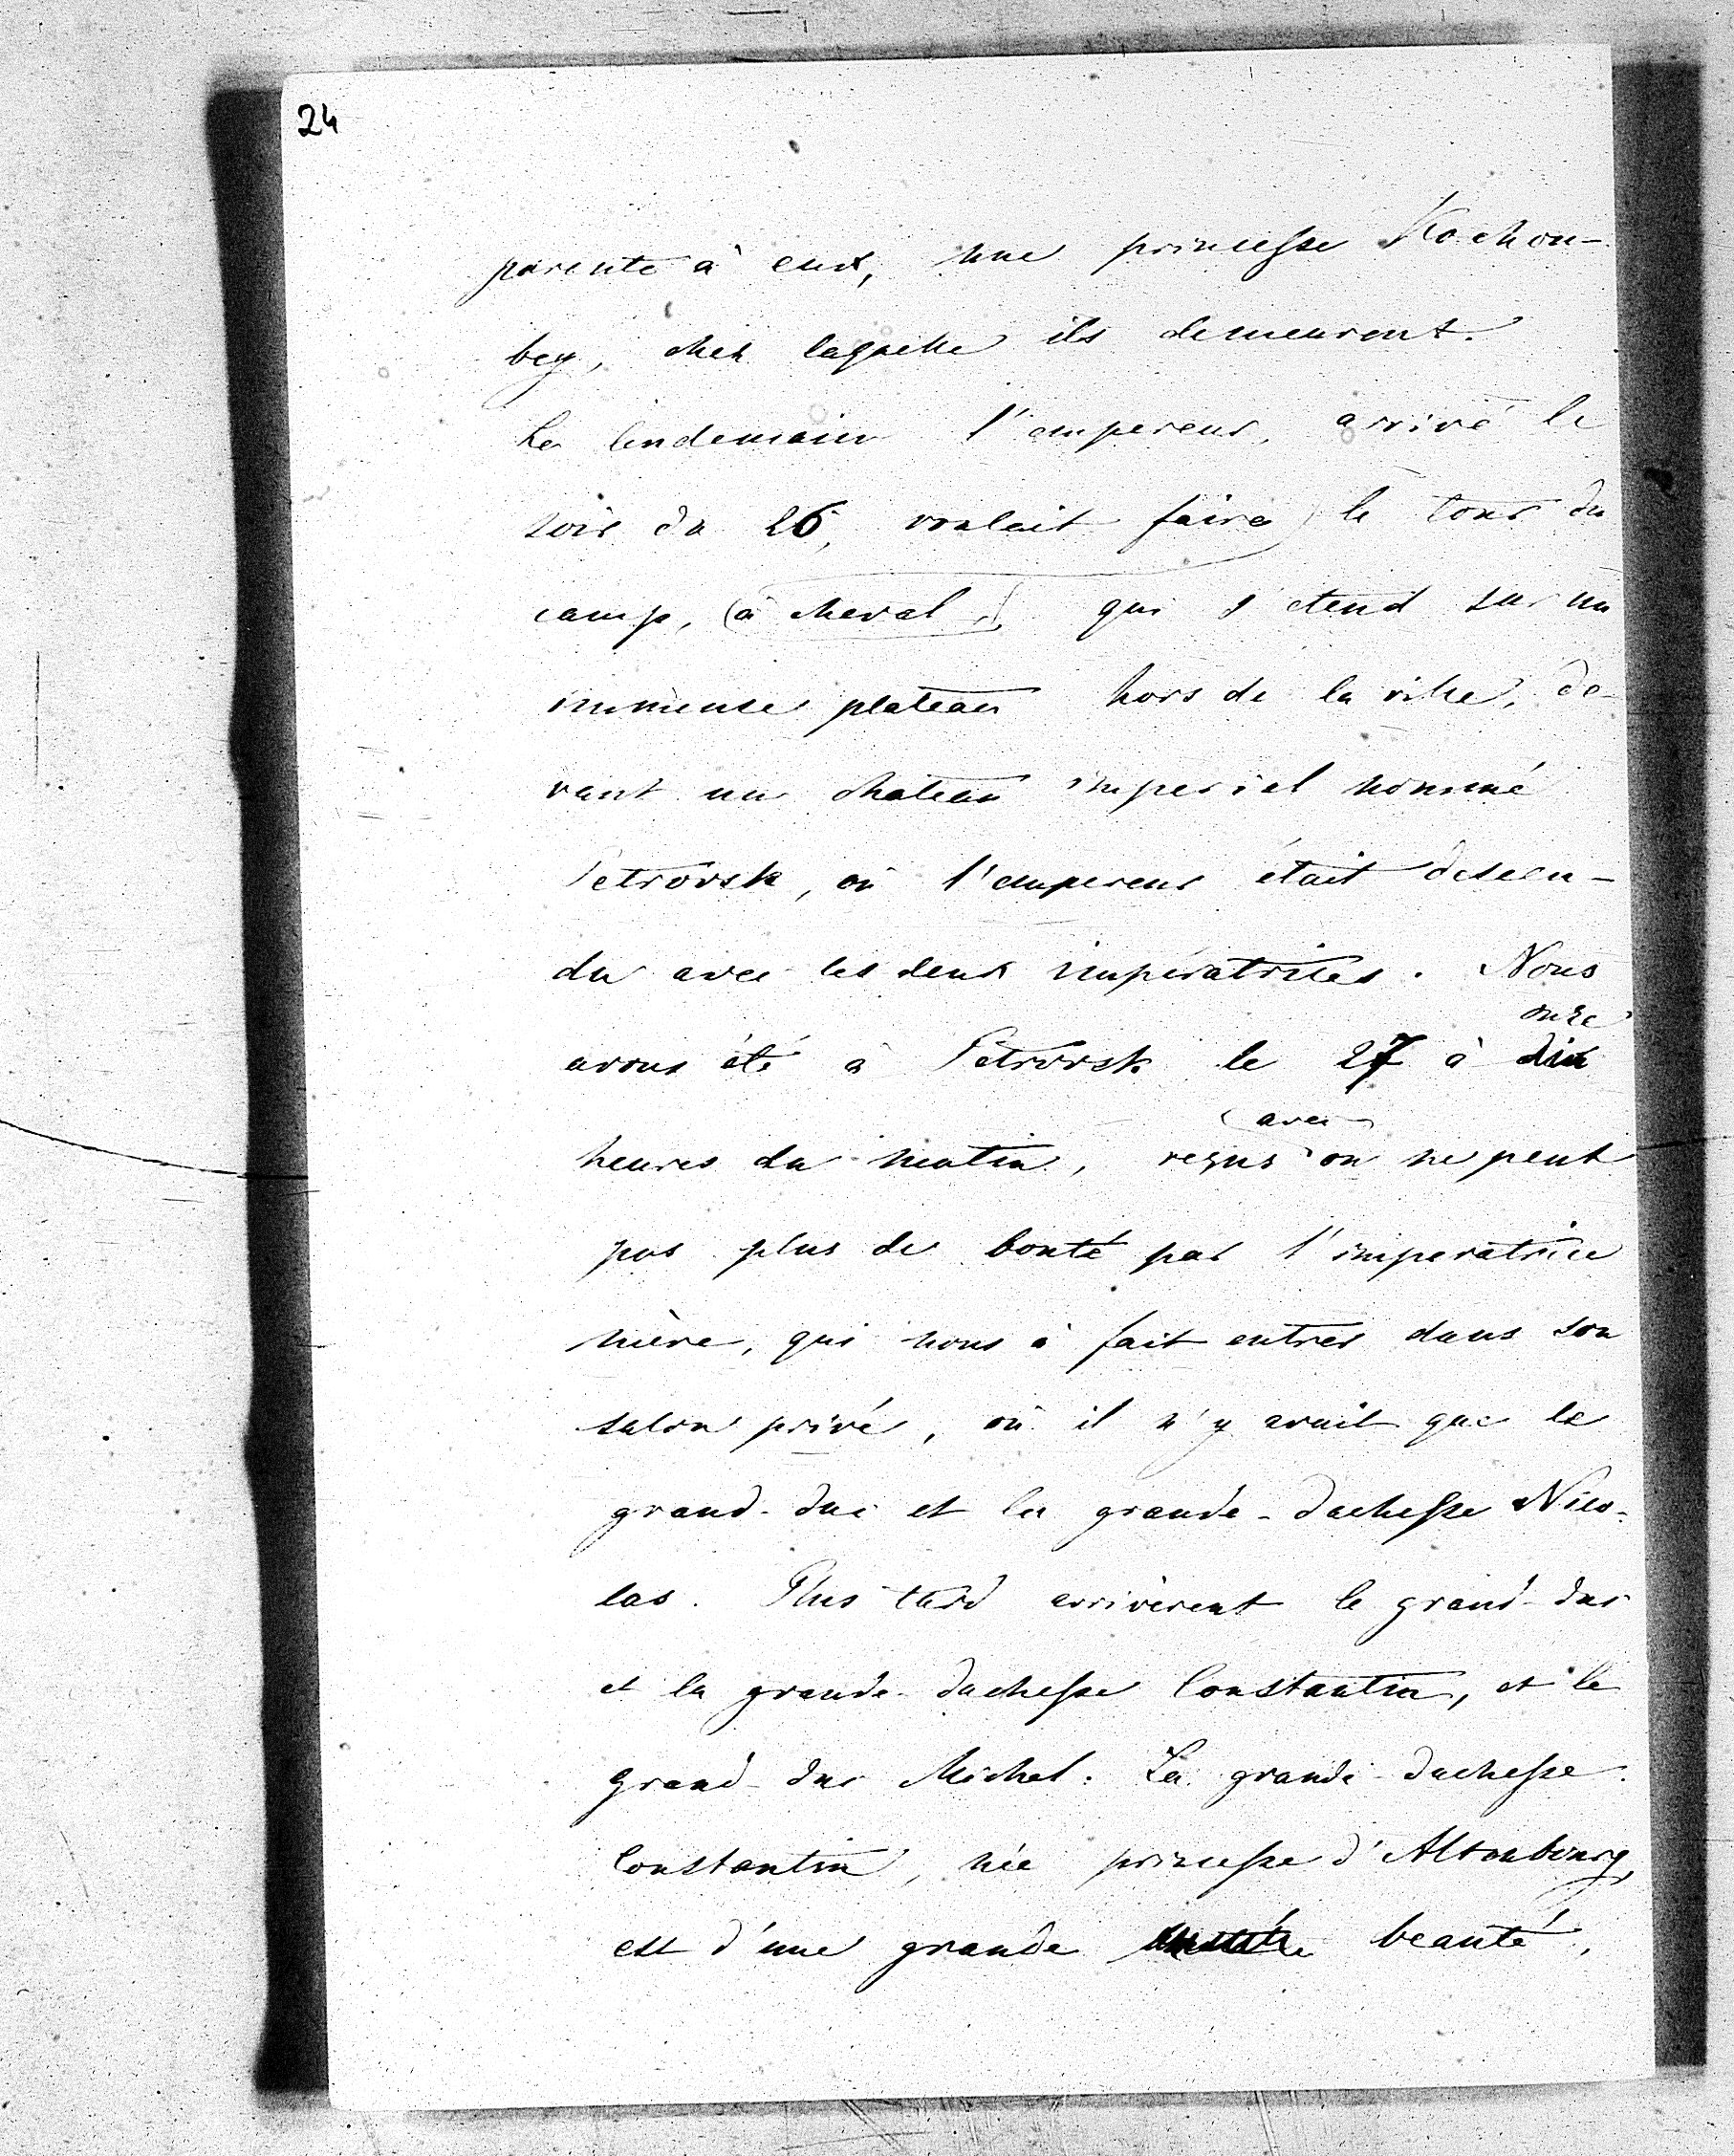 24
parente à eux, une princesse Kochou-
bey, chez laquelle ils demeurent.
Le lendemain l'empereur, arrivé le
soir du 26, voulait faire le tour du
camp, (à cheval,) qui s'étend sur un
immense plateau hors de la ville, de-
vant un chateau imperial nommé
Petrovsk, où l'empereur était descen-
du avec les deux impératrices. Nous
onze
avons été à Petrovsk le 27 à dix
avec
heures du matin, reçus on ne peut
pas plus de bonté par l'imperatrice
mère, qui nous à fait entrer dans son
salon privé, où il n'y avait que le
grand-duc et la grande-duchesse Nico-
las. Plus tard arrivèrent le grand-duc
et la grande-duchesse Constantin, et le
grand-duc Michel. La grande-duchesse
Constantin, née princesse d'Altenbourg,
est d'une grande beauté,